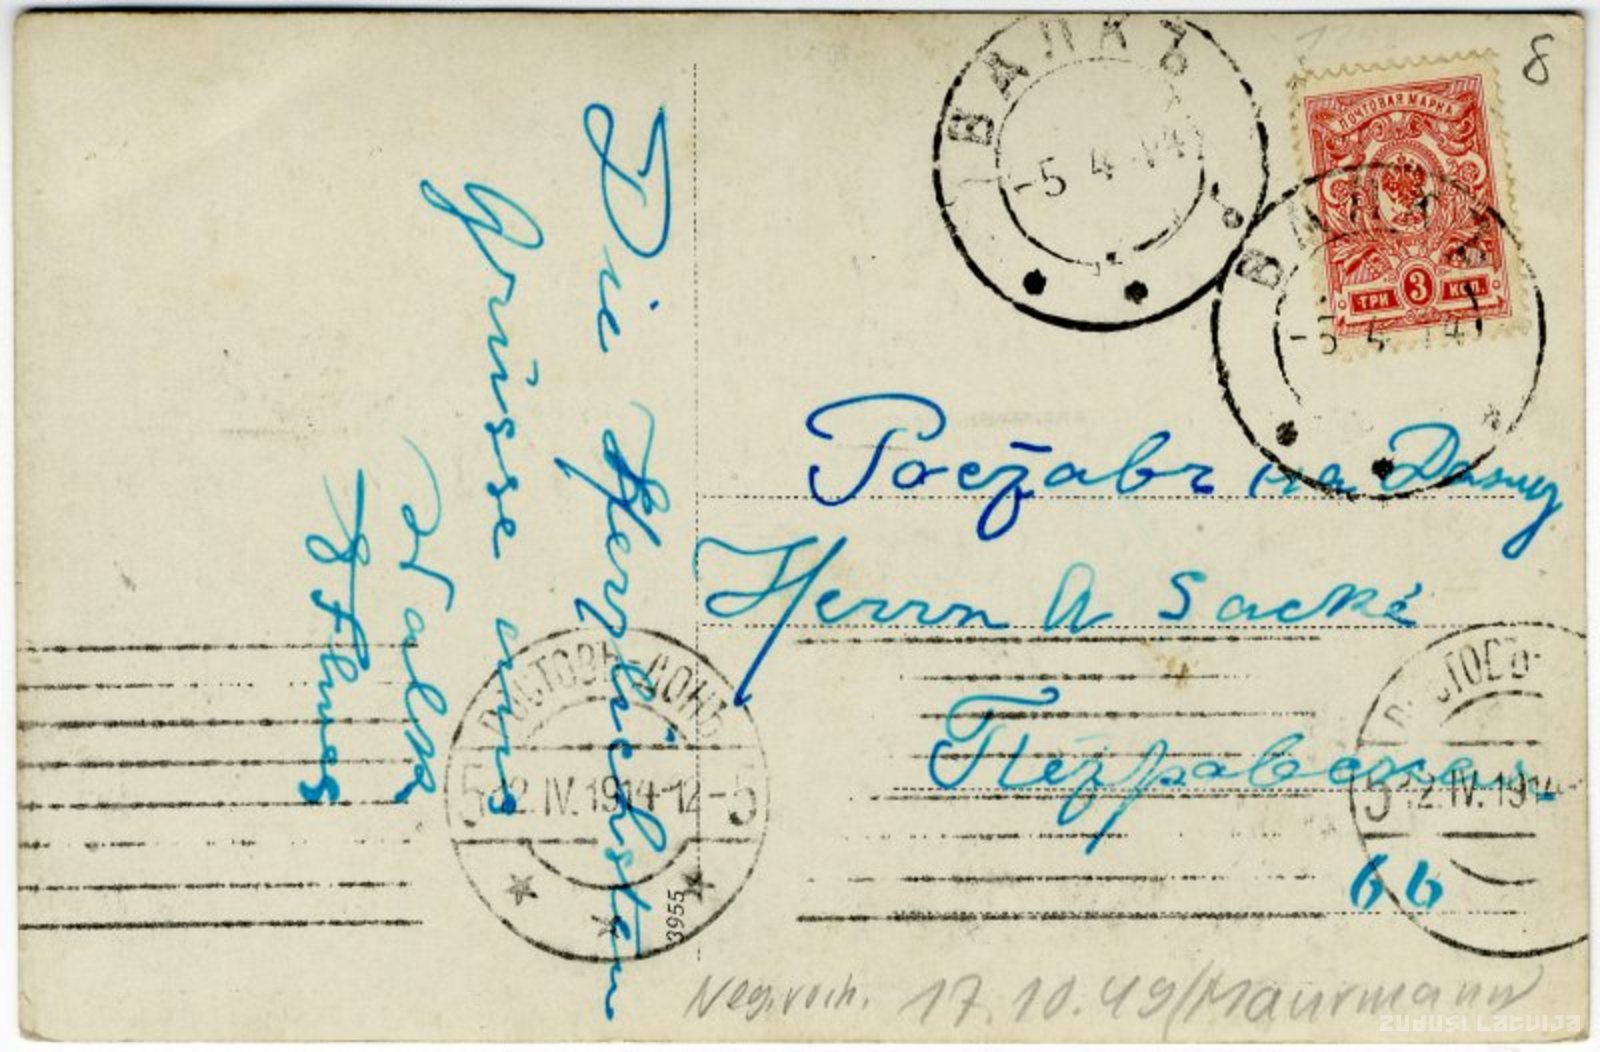 Die Herzlichsten
Grüsse aus
Walk
ВАЛКЪ
-5 4 14
ПОЧТОВАЯ МАРКА
ТРИ 3 КОП.
ВАЛКЪ
-5 4 14
8
Ростовъ на Дону
Herrn A Sacké
Петровская
66
РОСТОВЪ-ДОНЪ
5 12.IV.1914-12 5
РОСТОВЪ-
5 12.IV.1914-
3955
17.10.49
Zudusi Latvija